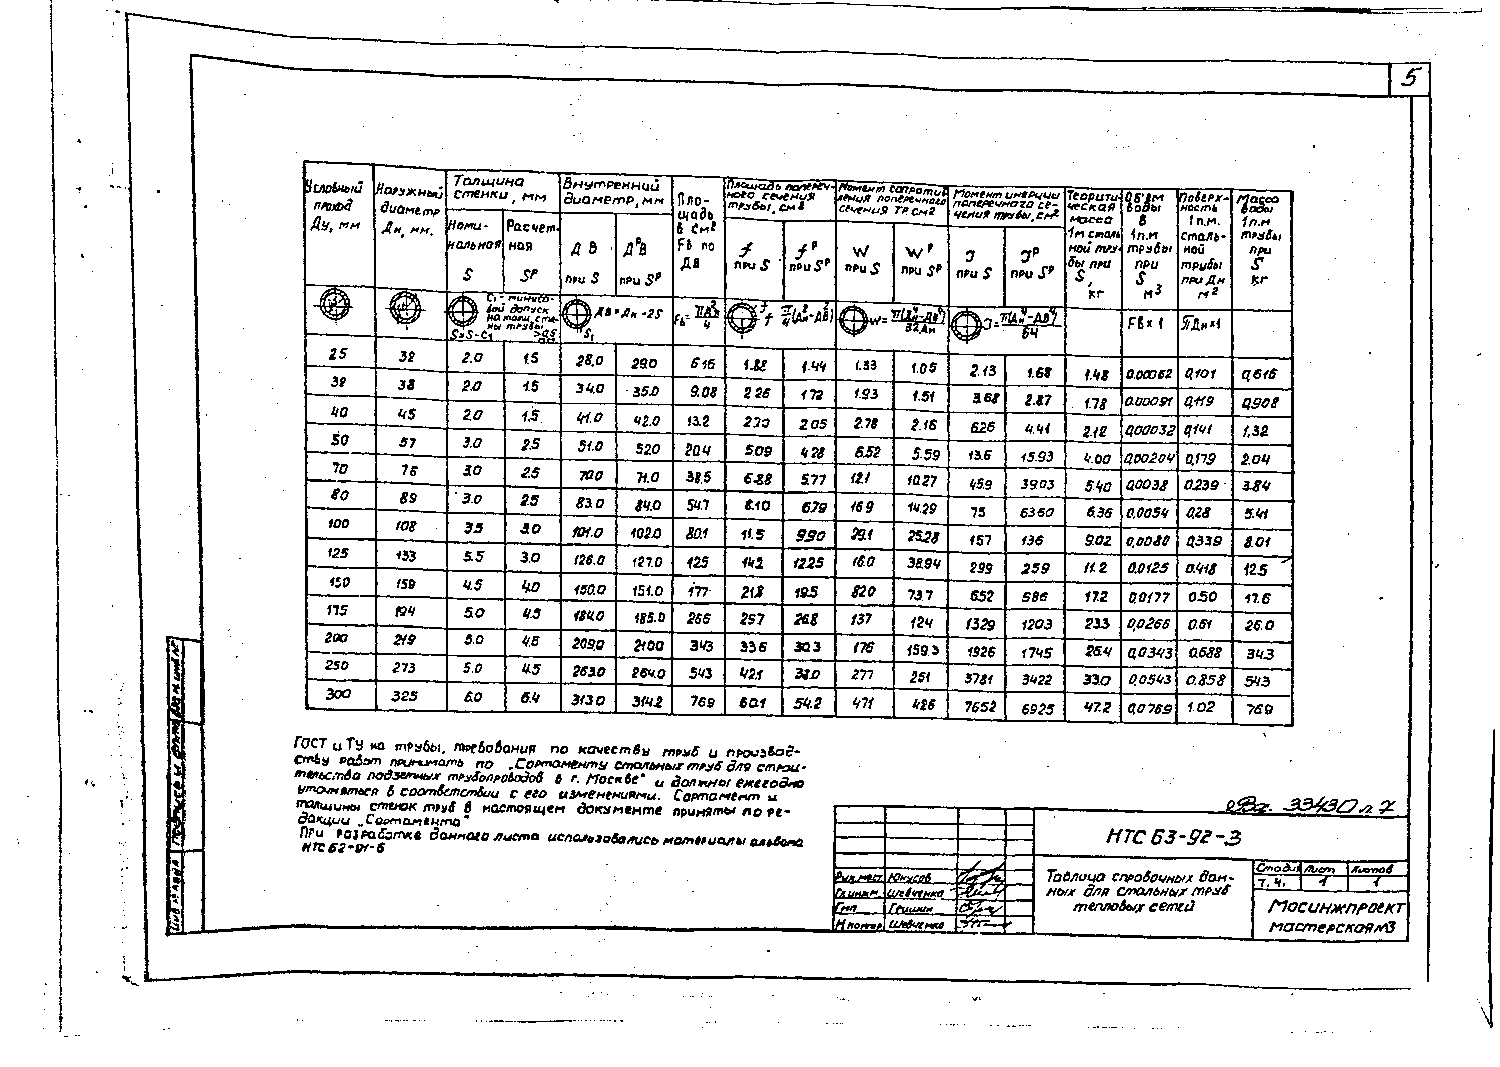 5
Условный проход Ду, мм
Наружный диаметр Дн, мм.
Толщина стенки, мм
Номинальная S
Расчетная Sᴾ
Внутренний диаметр, мм
Дв при S
Дᴾв при Sᴾ
Площадь в см² Fв по Дв
Площадь поперечного сечения трубы, см²
f при S
fᴾ при Sᴾ
Момент сопротивления поперечного сечения тр см²
W при S
Wᴾ при Sᴾ
Момент инерции поперечного сечения трубы, см²
J при S
Jᴾ при Sᴾ
Теоритическая масса 1м стальной трубы при S, кг
Объем воды в 1п.м трубы при S м³
Поверхность 1п.м. стальной трубы при Дн м²
Масса воды 1п.м трубы при S кг
C₁ - минусовой допуск на толщ. стены трубы
Sᴾ=S-C₁
Дв=Дн-2S
Fв=πДв²/4
f π/4(Дн²-Дв²)
W=π(Дн⁴-Дв⁴)/32Дн
J=π(Дн⁴-Дв⁴)/64
Fв×1
πДн×1
25 32 2.0 1.5 28.0 29.0 6.16 1.82 1.44 1.33 1.05 2.13 1.68 1.48 0.00062 0,101 0,616
32 38 2.0 1.5 34.0 35.0 9.08 2.26 1.72 1.93 1.51 3.68 2.87 1.78 0.00091 0,119 0,908
40 45 2.0 1.5 41.0 42.0 13.2 2.70 2.05 2.78 2.16 6.26 4.41 2.12 0,00032 0,141 1,32
50 57 3.0 2.5 51.0 52.0 20.4 5.09 4.28 6.52 5.59 13.6 15.93 4.00 0,00204 0,179 2.04
70 76 3.0 2.5 70.0 71.0 38.5 6.88 5.77 12.1 10.27 45.9 39.03 5.40 0,0038 0.239 3.84
80 89 3.0 2.5 83.0 84.0 54.7 8.10 6.79 16.9 14.29 75 63.60 6.36 0.0054 0.28 5.41
100 108 3.5 3.0 101.0 102.0 80.1 11.5 9.90 29.1 25.28 157 136 9.02 0,0080 0,339 8.01
125 133 5.5 3.0 126.0 127.0 125 14.2 12.25 16.0 38.94 299 259 11.2 0,0125 0.418 12.5
150 159 4.5 4.0 150.0 151.0 177 21.8 19.5 82.0 73.7 652 586 17.2 0,0177 0.50 17.6
175 194 5.0 4.5 184.0 185.0 266 29.7 26.8 137 124 1329 1203 23.3 0,0266 0.61 26.0
200 219 5.0 4.5 209.0 210.0 343 33.6 30.3 176 159.3 1926 1745 26.4 0,0343 0.688 34.3
250 273 5.0 4.5 263.0 264.0 543 42.1 38.0 277 251 3781 3422 33.0 0,0543 0.858 54.3
300 325 6.0 5.4 313.0 314.2 769 60.1 54.2 471 426 7652 6925 47.2 0,0769 1.02 76.9
ГОСТ и ТУ на трубы, требования по качеству труб и производ-
ству работ принимать по „Сортаменту стальных труб для строи-
тельства подземных трубопроводов в г. Москве" и должны ежегодно
уточняться в соответствии с его изменениями. Сортамент и
толщины стенок труб в настоящем документе приняты по ре-
дакции „Сортамента"
При разработке данного листа использовались материалы альбома
НТС 62-91-6
33430 л. 7
НТС 63-92-3
Рук.маст. Юнусов
Гл.инж.м. Шевченко
Гип Гришин
Н.контр Шевченко
Таблица справочных дан-
ных для стальных труб
тепловых сетей
Стадия Лист Листов
Т.Ч. 1 1
Мосинжпроект
мастерская №3
Инв № подл. Подпись и дата Взам инв №